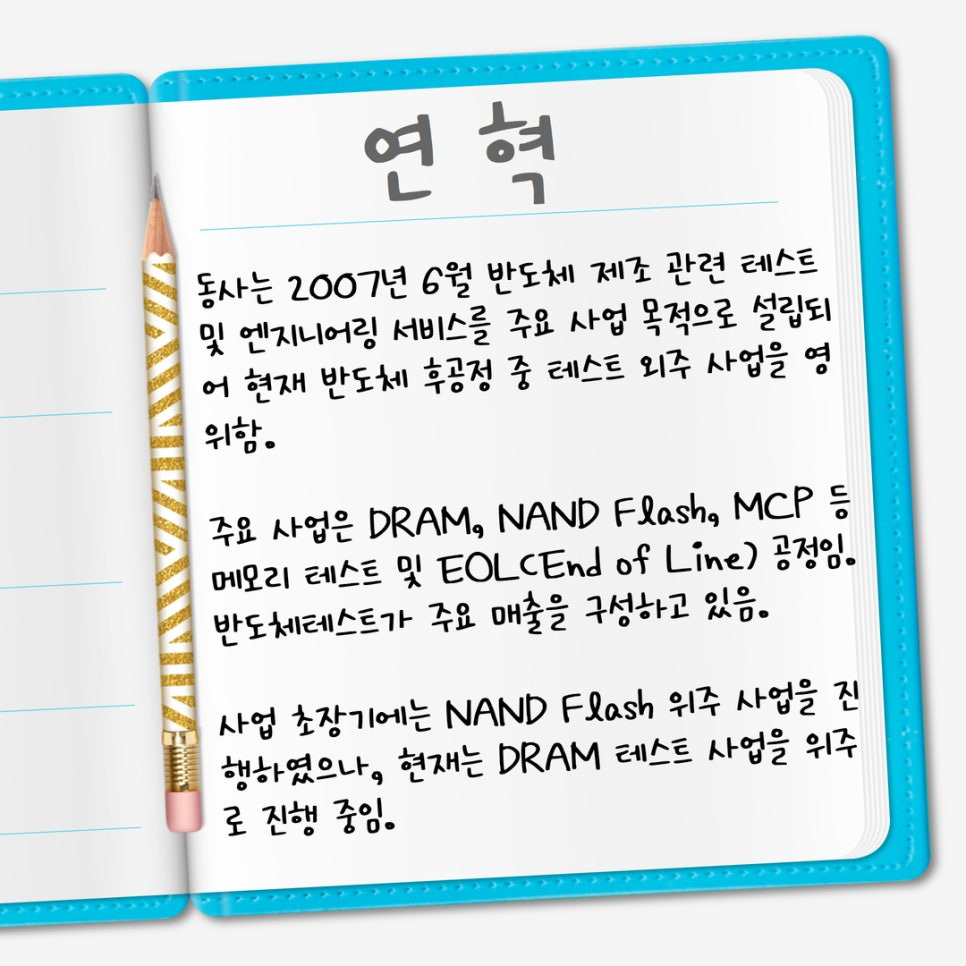 연 혁
동사는 2007년 6월 반도체 제조 관련 테스트
및 엔지니어링 서비스를 주요 사업 목적으로 설립되
어 현재 반도체 후공정 중 테스트 외주 사업을 영
위함.
주요 사업은 DRAM, NAND Flash, MCP 등
메모리 테스트 및 EOL(End of Line) 공정임.
반도체테스트가 주요 매출을 구성하고 있음.
사업 초장기에는 NAND Flash 위주 사업을 진
행하였으나, 현재는 DRAM 테스트 사업을 위주
로 진행 중임.